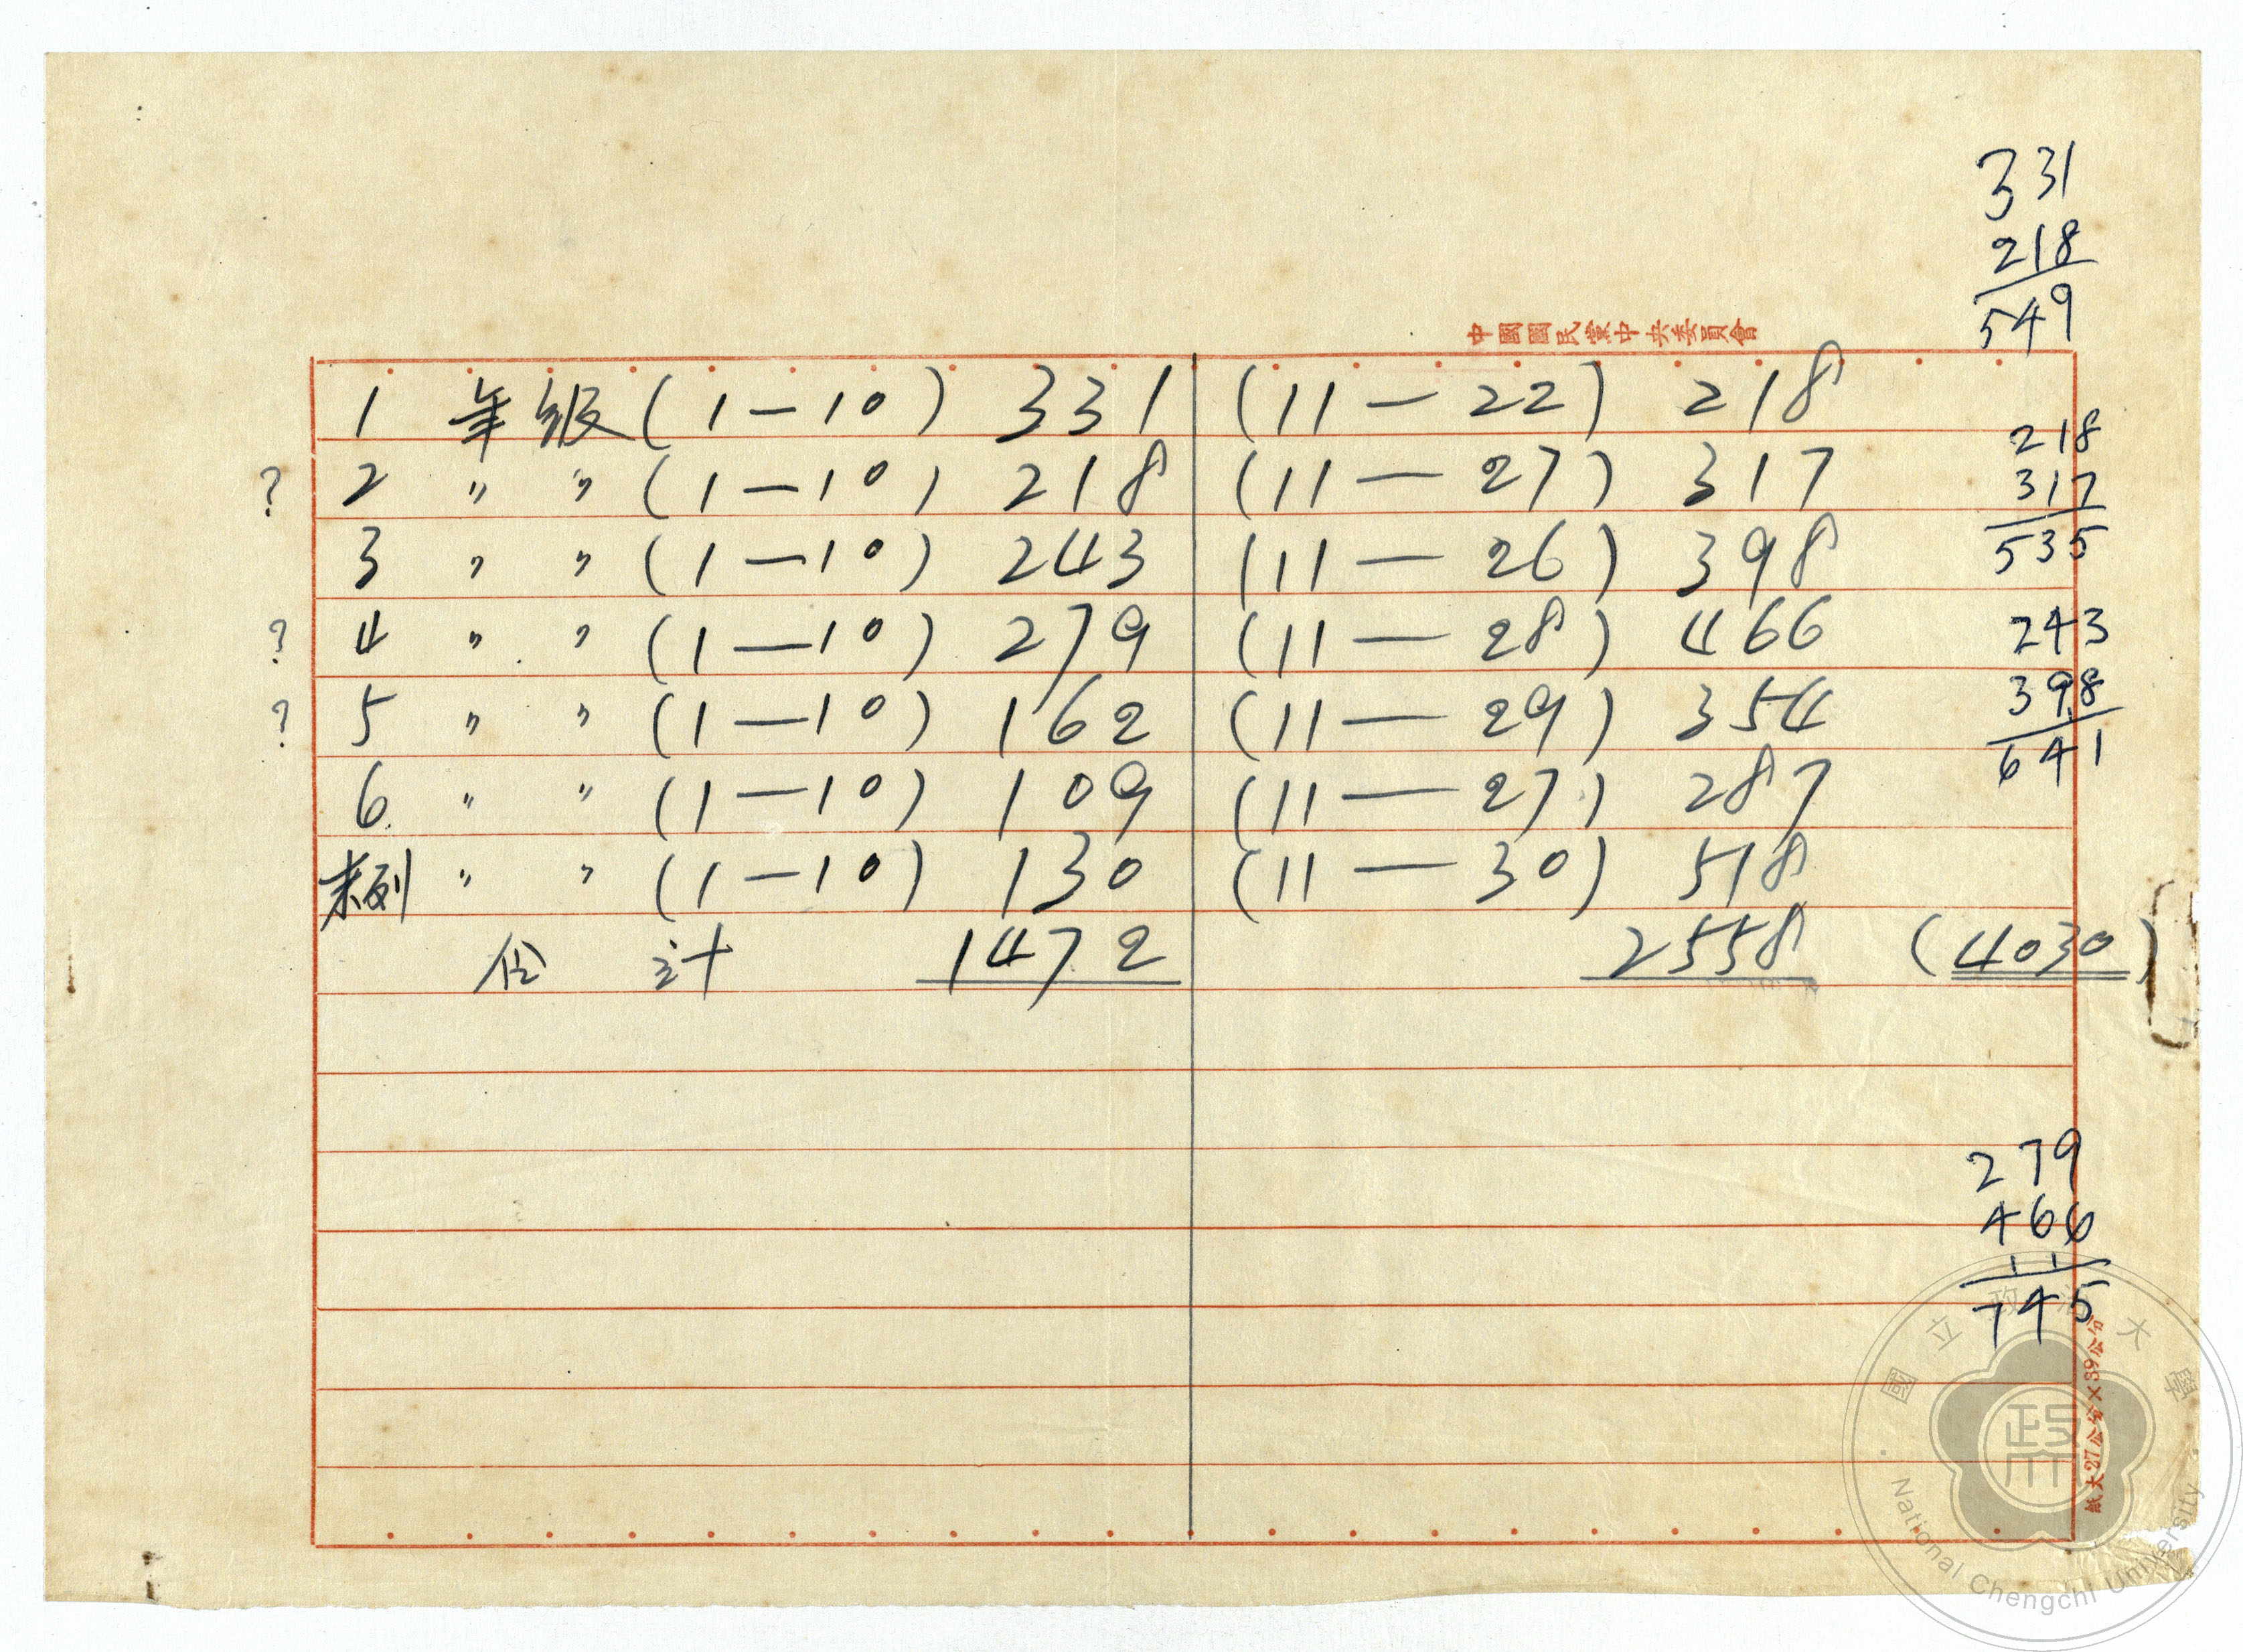 331
218
549
中國國民黨中央委員會
1 年級 (1-10) 331 (11-22) 218
? 2 〃 〃 (1-10) 218 (11-27) 317
3 〃 〃 (1-10) 243 (11-26) 398
? 4 〃 〃 (1-10) 279 (11-28) 466
? 5 〃 〃 (1-10) 162 (11-29) 354
6 〃 〃 (1-10) 109 (11-27) 287
未列 〃 〃 (1-10) 130 (11-30) 518
合 計 1472 2558 (4030)
218
317
535
243
398
641
279
466
11
745
紙大27公分×39公分
國立政治大學
National Chengchi University